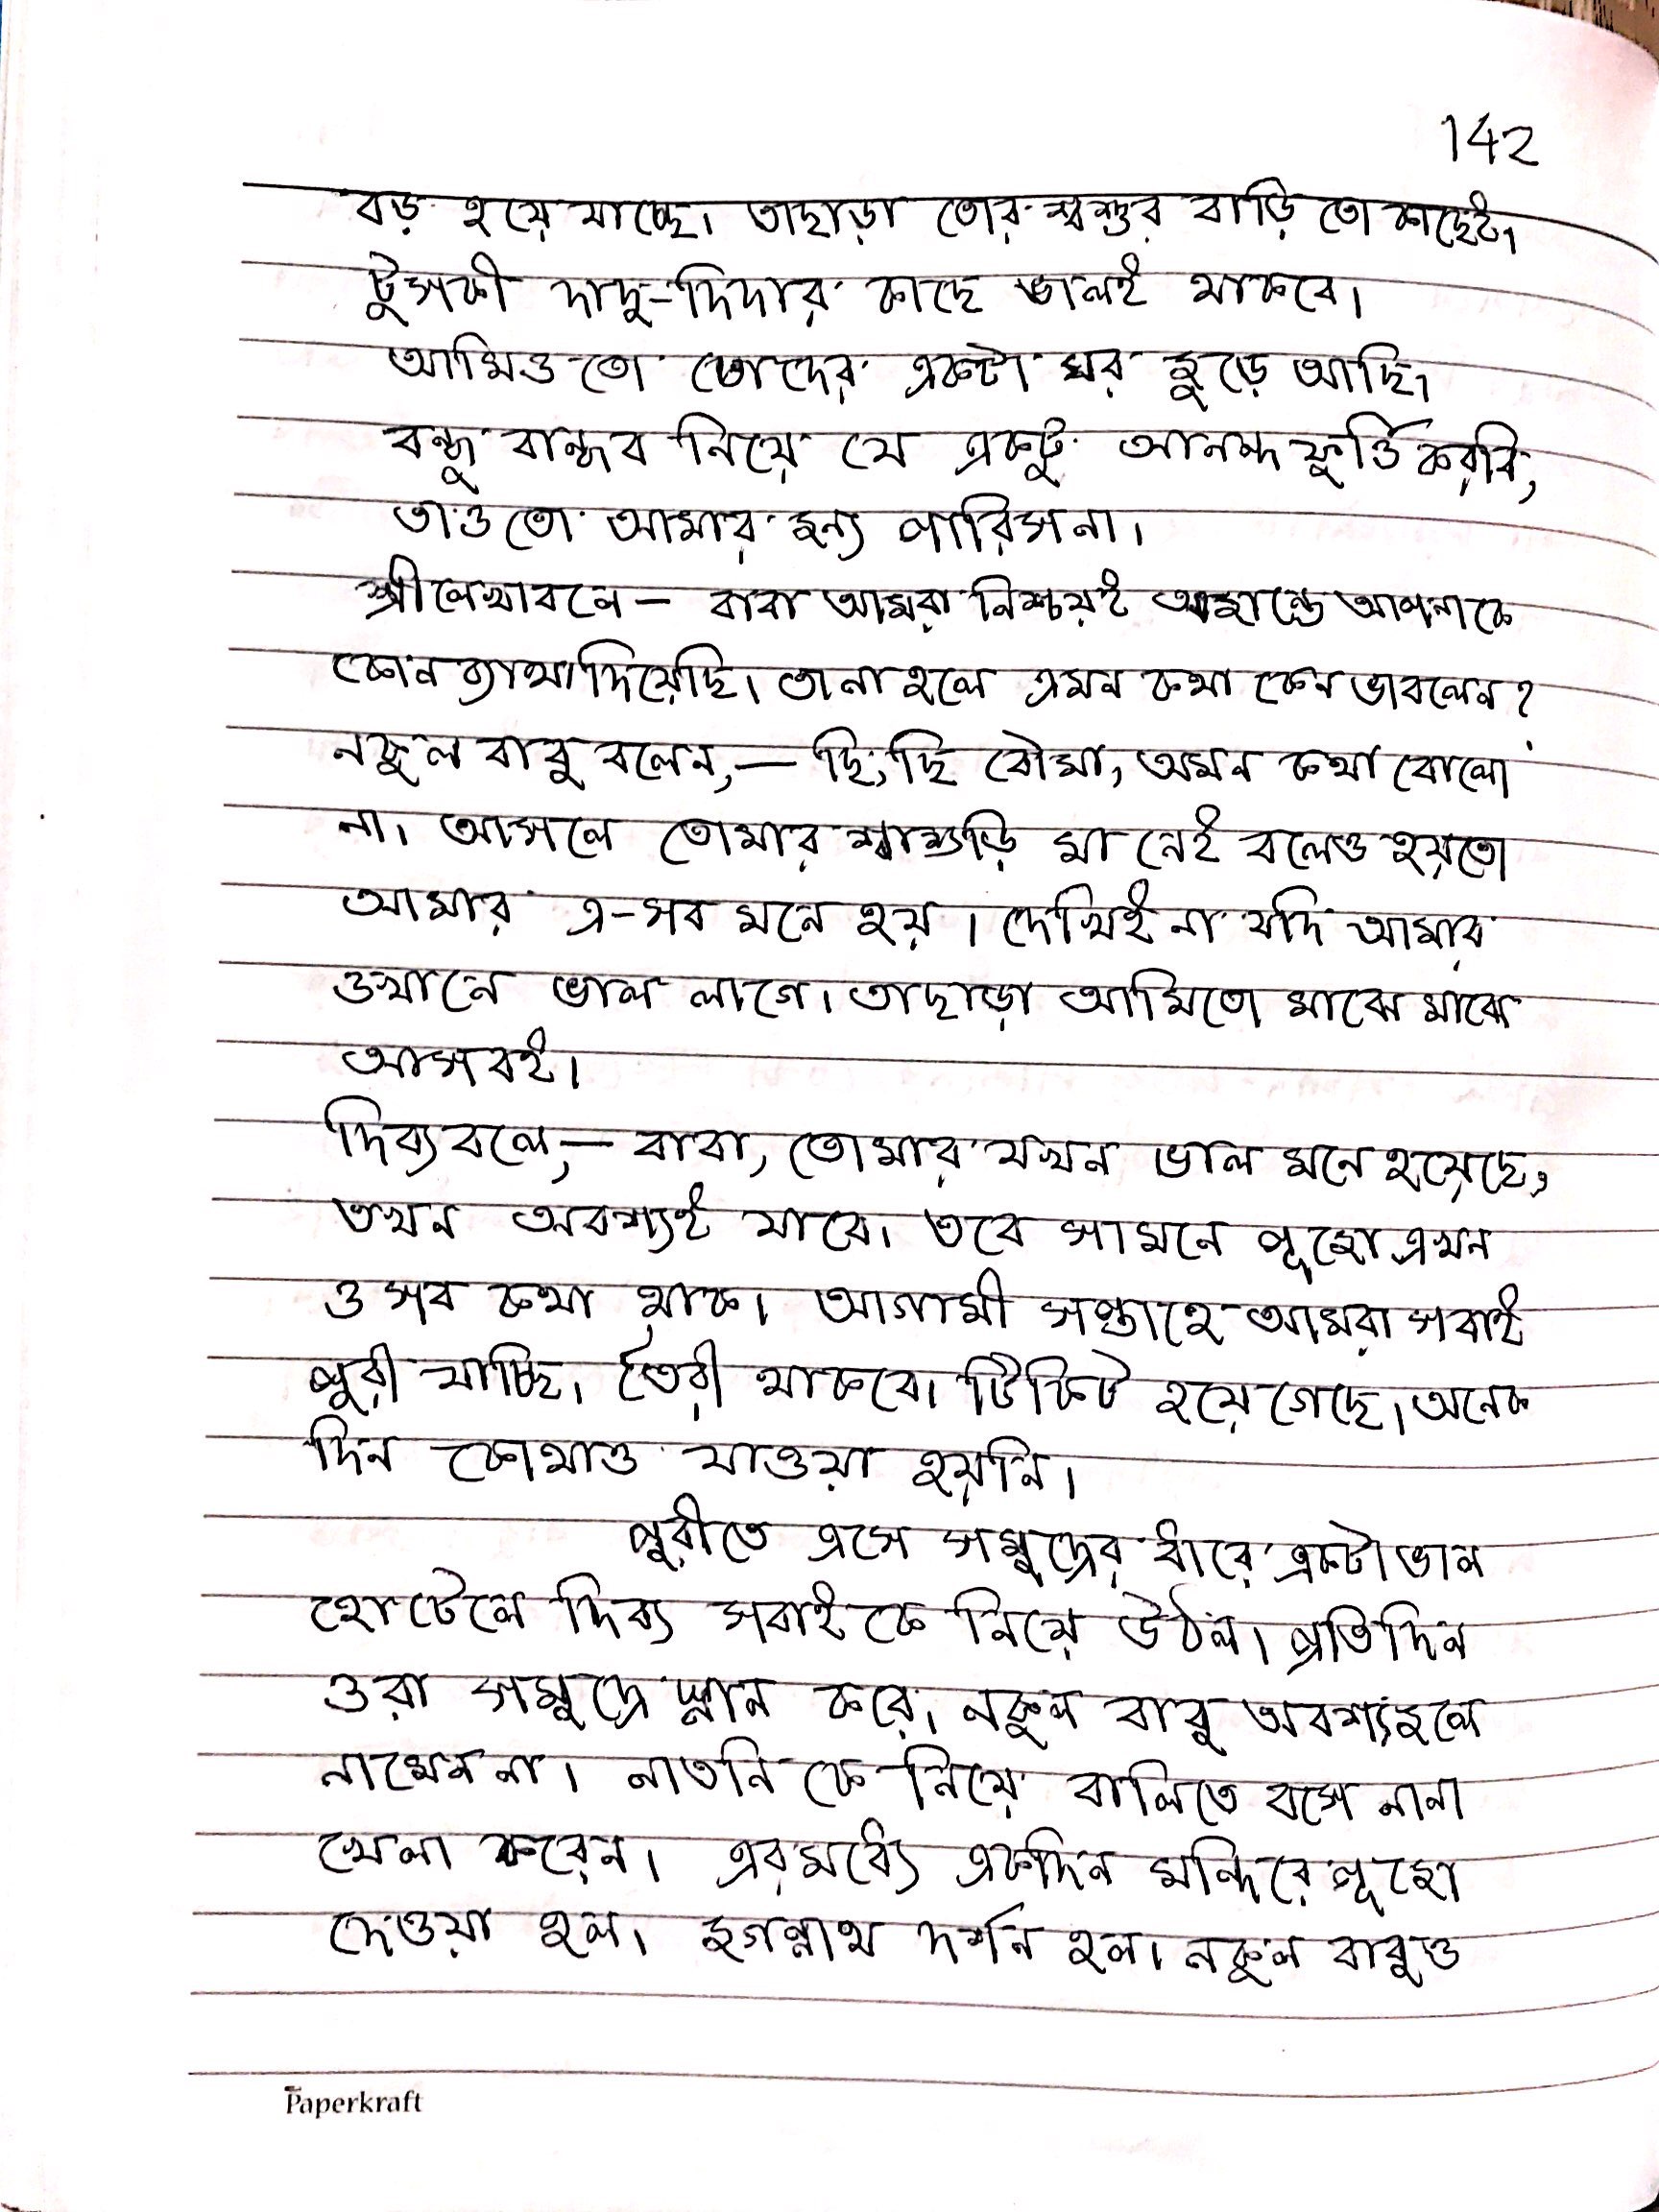 142
বড় হয়ে যাচ্ছে। তাছাড়া তোর শ্বশুর বাড়ি তো কাছেই।
টুসকী দাদু-দিদার কাছে ভালই থাকবে।
আমিও তো তোদের একটা ঘর জুড়ে আছি।
বন্ধু বান্ধব নিয়ে যে একটু আনন্দ ফুর্ত্তি করবি,
তাও তো আমার জন্য পারিস না।
শ্রীলেখা বলে – বাবা আমরা নিশ্চয়ই অজান্তে আপনাকে
কোন ব্যাথা দিয়েছি। তা না হলে এমন কথা কেন ভাবলেন?
নকুল বাবু বলেন,— ছি, ছি বৌমা, অমন কথা বোলো
না। আসলে তোমার শ্বাশুড়ি মা নেই বলেও হয়তো
আমার এ-সব মনে হয়। দেখিই না যদি আমার
ওখানে ভাল লাগে। তাছাড়া আমিতো মাঝে মাঝে
আসবই।
দিব্য বলে,— বাবা, তোমার যখন ভাল মনে হয়েছে,
তখন অবশ্যই যাবে। তবে সামনে পূজো এখন
ও সব কথা থাক। আগামী সপ্তাহে আমরা সবাই
পুরী যাচ্ছি। তৈরী থাকবে। টিকিট হয়ে গেছে। অনেক
দিন কোথাও যাওয়া হয়নি।
পুরীতে এসে সমুদ্রের ধারে একটা ভাল
হোটেলে দিব্য সবাইকে নিয়ে উঠল। প্রতিদিন
ওরা সমুদ্রে স্নান করে। নকুল বাবু অবশ্য জলে
নামেন না। নাতনি কে নিয়ে বালিতে বসে নানা
খেলা করেন। এরমধ্যে একদিন মন্দিরে পূজো
দেওয়া হল। জগন্নাথ দর্শন হল। নকুল বাবুও
Paperkraft